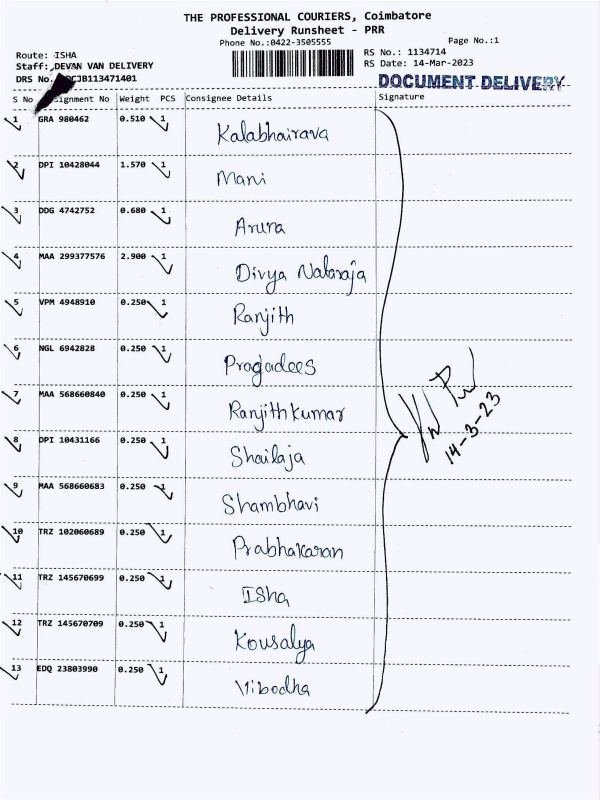 THE PROFESSIONAL COURIERS, Coimbatore
Delivery Runsheet - PRR
Phone No.:0422-3505555
Page No.:1
Route: ISHA
RS No.: 1134714
Staff: DEVAN VAN DELIVERY
RS Date: 14-Mar-2023
DRS No. CJB113471401
DOCUMENT DELIVERY
S No signment No Weight PCS Consignee Details Signature
1 GRA 980462 0.510 1 Kalabhairava
2 DPI 10428044 1.570 1 Mani
3 DDG 4742752 0.680 1 Arura
4 MAA 299377576 2.900 1 Divya Nataraja
5 VPM 4948910 0.250 1 Ranjith
6 NGL 6942828 0.250 1 Pragadees
7 MAA 568660840 0.250 1 Ranjith kumar
8 DPI 10431166 0.250 1 Shailaja
9 MAA 568660683 0.250 1 Shambhavi
10 TRZ 102060689 0.250 1 Prabhakaran
11 TRZ 145670699 0.250 1 Isha
12 TRZ 145670709 0.250 1 Kousalya
13 EDQ 23803990 0.250 1 Vibodha
14-3-23